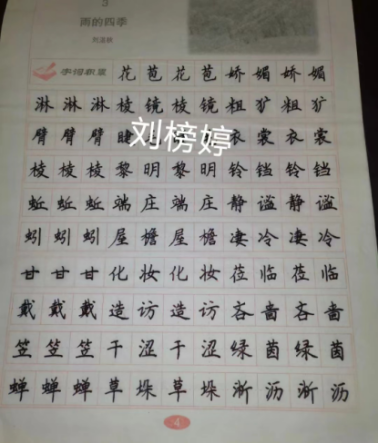 3
雨的四季
刘湛秋
字词积累 花 苞 花 苞 娇 媚 娇 媚
淋 淋 淋 棱 镜 棱 镜 粗 犷 粗 犷
臂 臂 臂 衣 裳 衣 裳
刘榜婷
棱 棱 棱 黎 明 黎 明 铃 铛 铃 铛
蚯 蚯 蚯 端 庄 端 庄 静 谧 静 谧
蚓 蚓 蚓 屋 檐 屋 檐 凄 冷 凄 冷
甘 甘 甘 化 妆 化 妆 莅 临 莅 临
戴 戴 戴 造 访 造 访 吝 啬 吝 啬
笠 笠 笠 干 涩 干 涩 绿 茵 绿 茵
蝉 蝉 蝉 草 垛 草 垛 淅 沥 淅 沥
4